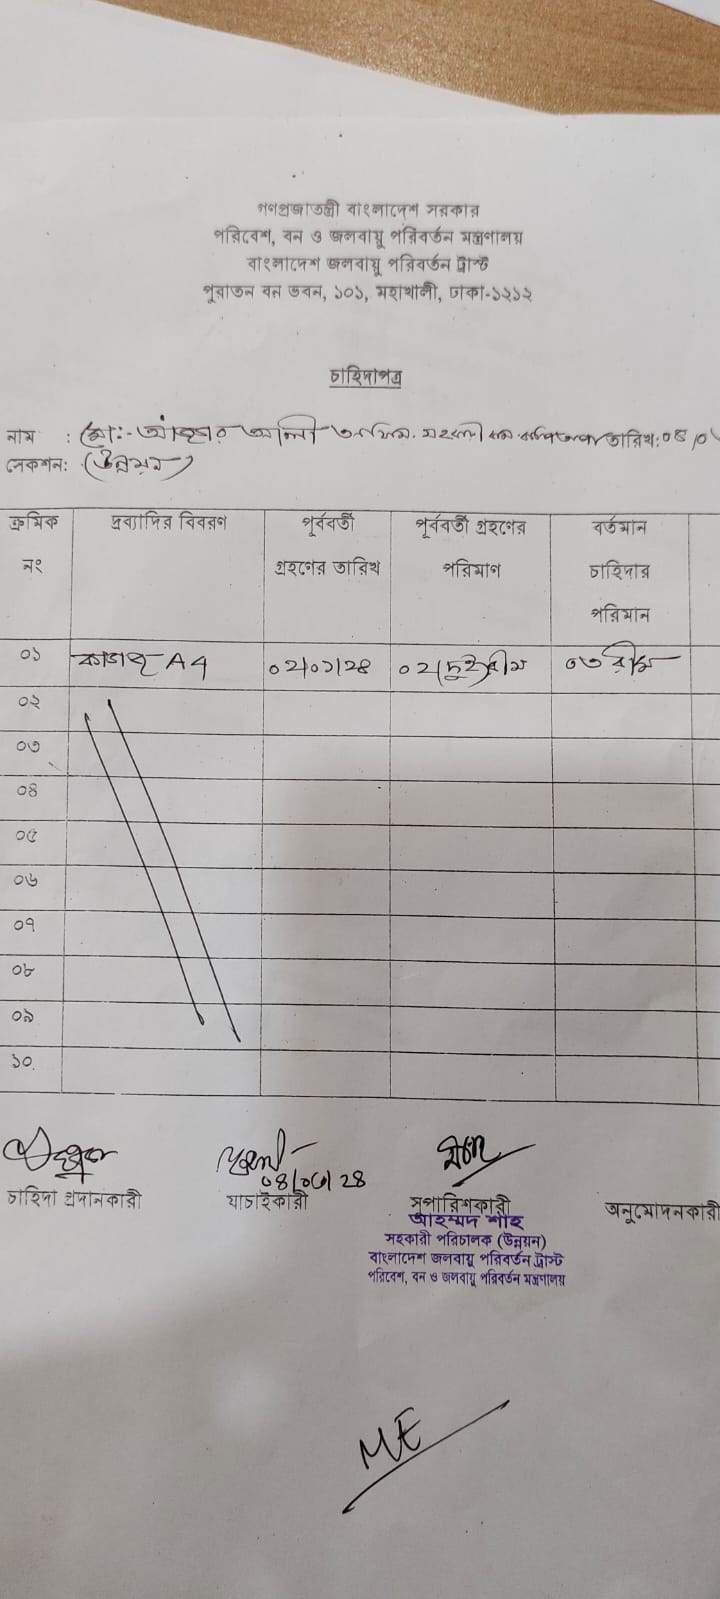 গণপ্রজাতন্ত্রী বাংলাদেশ সরকার
পরিবেশ, বন ও জলবায়ু পরিবর্তন মন্ত্রণালয়
বাংলাদেশ জলবায়ু পরিবর্তন ট্রাস্ট
পুরাতন বন ভবন, ১০১, মহাখালী, ঢাকা-১২১২
চাহিদাপত্র
নাম : মো:- আলী অফিস তারিখ: ০৪/০
সেকশন: (উন্নয়ন)
ক্রমিক নং দ্রব্যাদির বিবরণ পূর্ববর্তী গ্রহণের তারিখ পূর্ববর্তী গ্রহণের পরিমাণ বর্তমান চাহিদার পরিমান
০১ কাগজ A4 ০২(দুই)রীম ০৩ রীম
০২
০৩
০৪
০৫
০৬
০৭
০৮
০৯
১০.
চাহিদা প্রদানকারী যাচাইকারী সুপারিশকারী অনুমোদনকারী
আহম্মদ শাহ
সহকারী পরিচালক (উন্নয়ন)
বাংলাদেশ জলবায়ু পরিবর্তন ট্রাস্ট
পরিবেশ, বন ও জলবায়ু পরিবর্তন মন্ত্রণালয়
ME